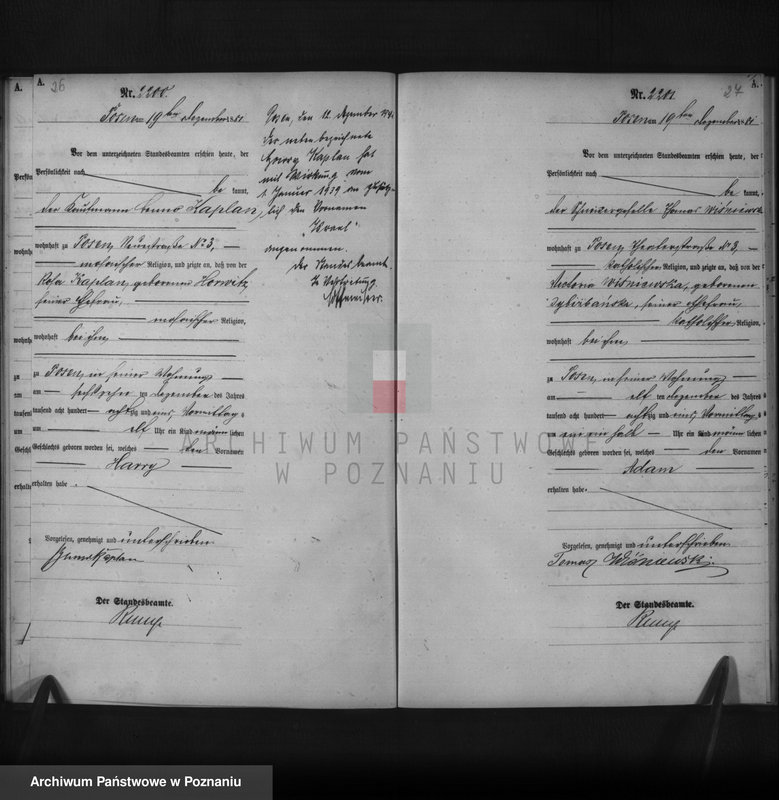 A.
A. 26
Nr. 2200.
Posen am 19ten Dezember 1881
Vor dem unterzeichneten Standesbeamten erschien heute, der
Persönlichkeit nach
be kannt,
der Kaufmann Benno Kaplan,
wohnhaft zu Posen, Neuestraße No 3,
mosaischer Religion, und zeigte an, daß von der
Rosa Kaplan, geborenen Horwitz,
seiner Ehefrau,
mosaischer Religion,
wohnhaft bei ihm
zu Posen, in seiner Wohnung
am sechzehnten Dezember des Jahres
tausend acht hundert achtzig und eins, Vormittag
um elf Uhr ein Kind männlichen
Geschlechts geboren worden sei, welches den Vornamen
Harry
erhalten habe
Vorgelesen, genehmigt und unterschrieben
Benno Kaplan
Der Standesbeamte.
Rump
Posen, den 12. Dezember
Der nebenbezeichnete
Kaplan hat
mit Wirkung vom
1. Januar 1939 an zusätz-
lich den Vornamen
"Israel"
angenommen.
Der Standesbeamte
In Vertretung
Nr. 2201.
27 A.
Posen am 19ten Dezember 81
Vor dem unterzeichneten Standesbeamten erschien heute, der
Persönlichkeit nach
be kannt,
der Schneidergeselle Thomas Wiśniewski
wohnhaft zu Posen, Theaterstraße No 3,
katholischer Religion, und zeigte an, daß von der
Victoria Wiśniewska, geborenen
seiner Ehefrau,
katholischer Religion,
wohnhaft bei ihm
zu Posen, in seiner Wohnung
am elf ten Dezember des Jahres
tausend acht hundert achtzig und eins, Vormittag
um ein ein halb Uhr ein Kind männlichen
Geschlechts geboren worden sei, welches den Vornamen
Adam
erhalten habe
Vorgelesen, genehmigt und unterschrieben
Tomasz Wiśniewski.
Der Standesbeamte.
Rump
ARCHIWUM PAŃSTWOWE
W POZNANIU
Archiwum Państwowe w Poznaniu